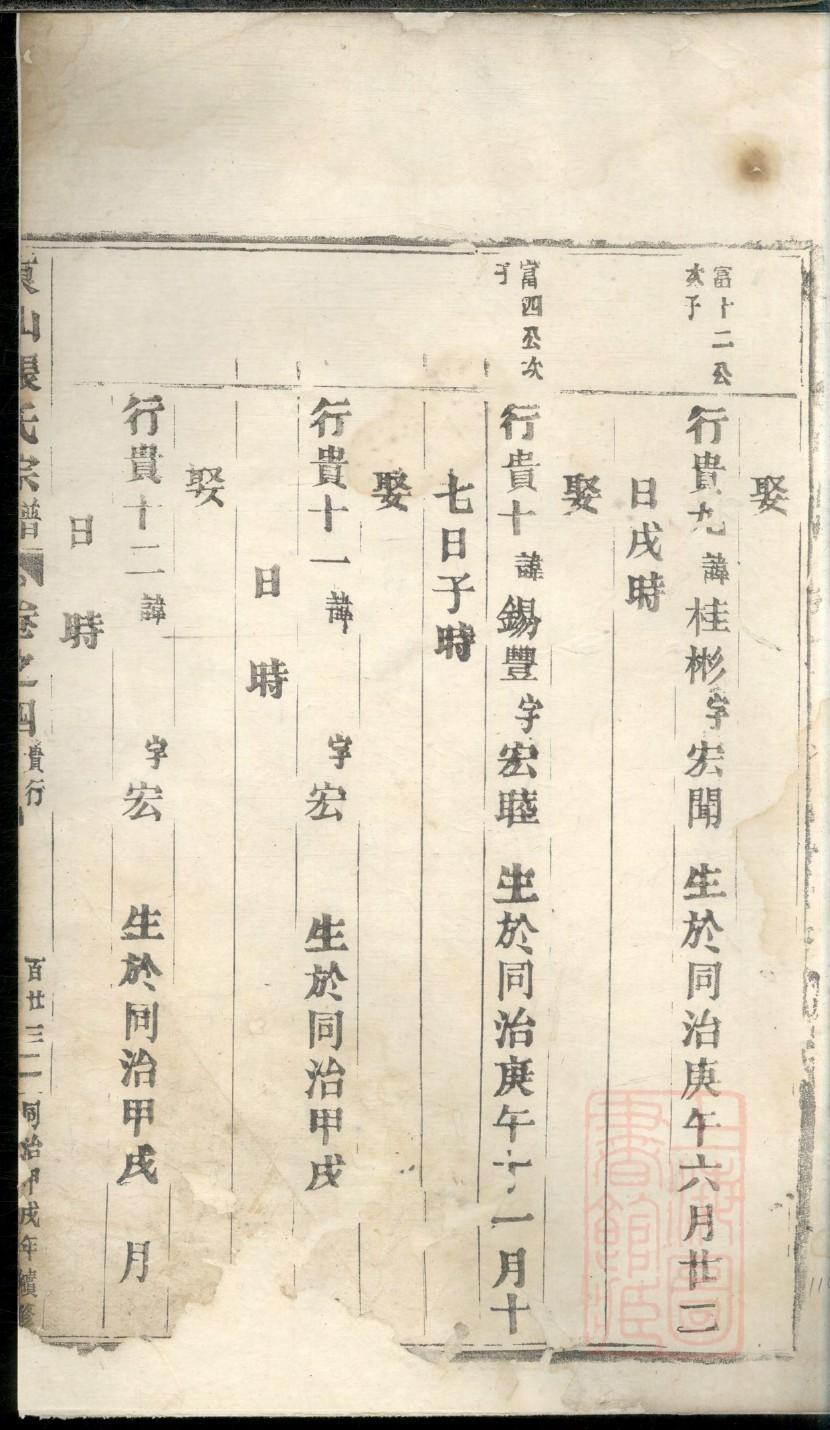 娶
富十二公
次子
行貴九 諱桂彬字宏聞 生於同治庚午六月廿二
日戌時
娶
富四公次
子
行貴十 諱錫豐字宏睦 生於同治庚午十一月十
七日子時
娶
行貴十一 諱 字宏 生於同治甲戌
日 時
娶
行貴十二 諱 字宏 生於同治甲戌 月
日 時
山張氏宗譜 卷之四 貴行 百廿三 同治甲戌年續修
上海圖書館藏